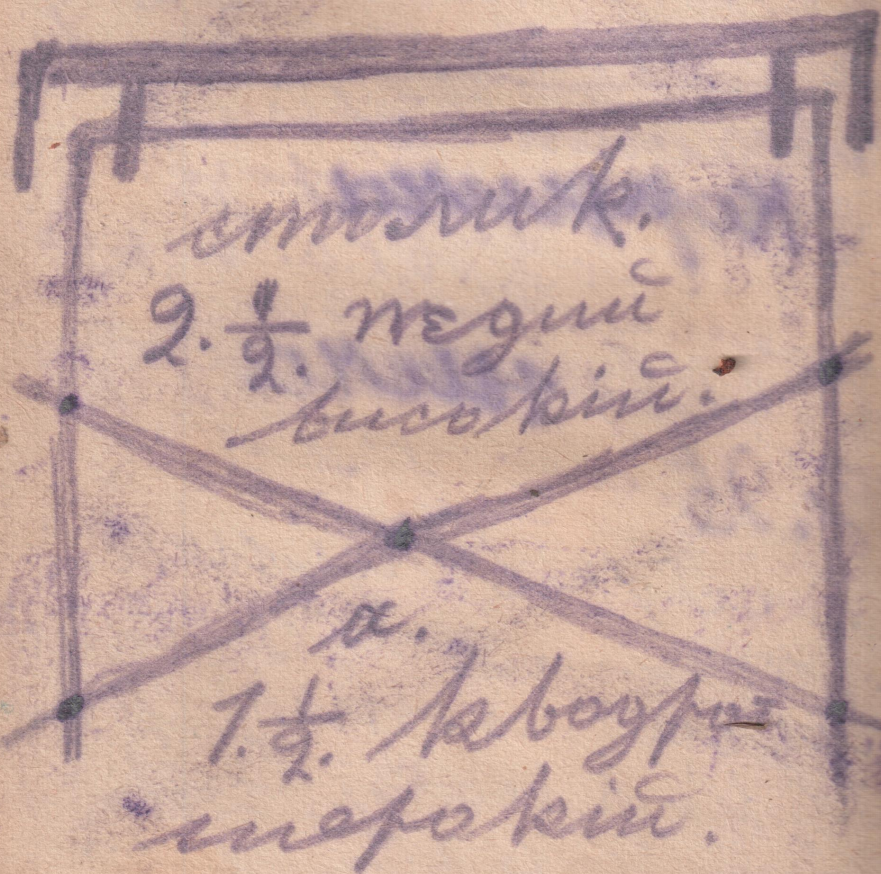 столик.
2. 1/2.
високій.
а.
1. 1/2. кводра=
шерокій.